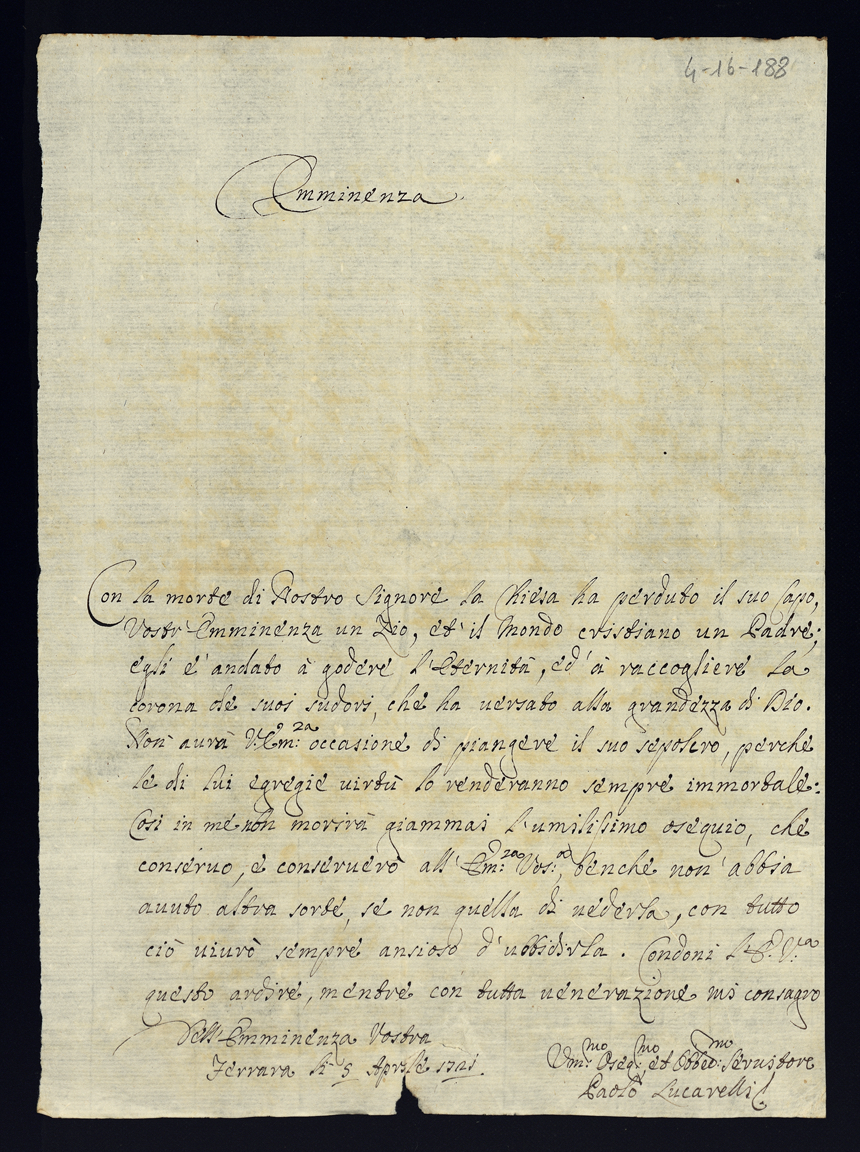 4-16-188
Emminenza
Con la morte di Nostro Signore la Chiesa ha perduto il suo Capo,
Vostr'Emminenza un Zio, et il Mondo cristiano un Padre;
egli e' andato à godere l'Eternità, ed à raccogliere la
corona de suoi sudori, che ha versato alla grandezza di Dio.
Non aurà V. Em:za occasione di piangere il suo sepolcro, perche
le di lui egregie uirtù lo renderanno sempre immortale:
Cosi in me non morirà giammai l'umilissimo osequio, che
conseruo, e conseruerò all'Em:za Vos:a, benche non abbia
auuto altra sorte, se non quella di uederla, con tutto
ciò uiurò sempre ansioso d'ubbidirla. Condoni l'E. V:a
questo ardire, mentre con tutta uenerazione mi consagro
Dell'Emminenza Vostra
Ferrara li 5 Aprile 1721.
Um:mo Oseq:mo, et Obbed:mo Seruitore
Paolo Lucarelli